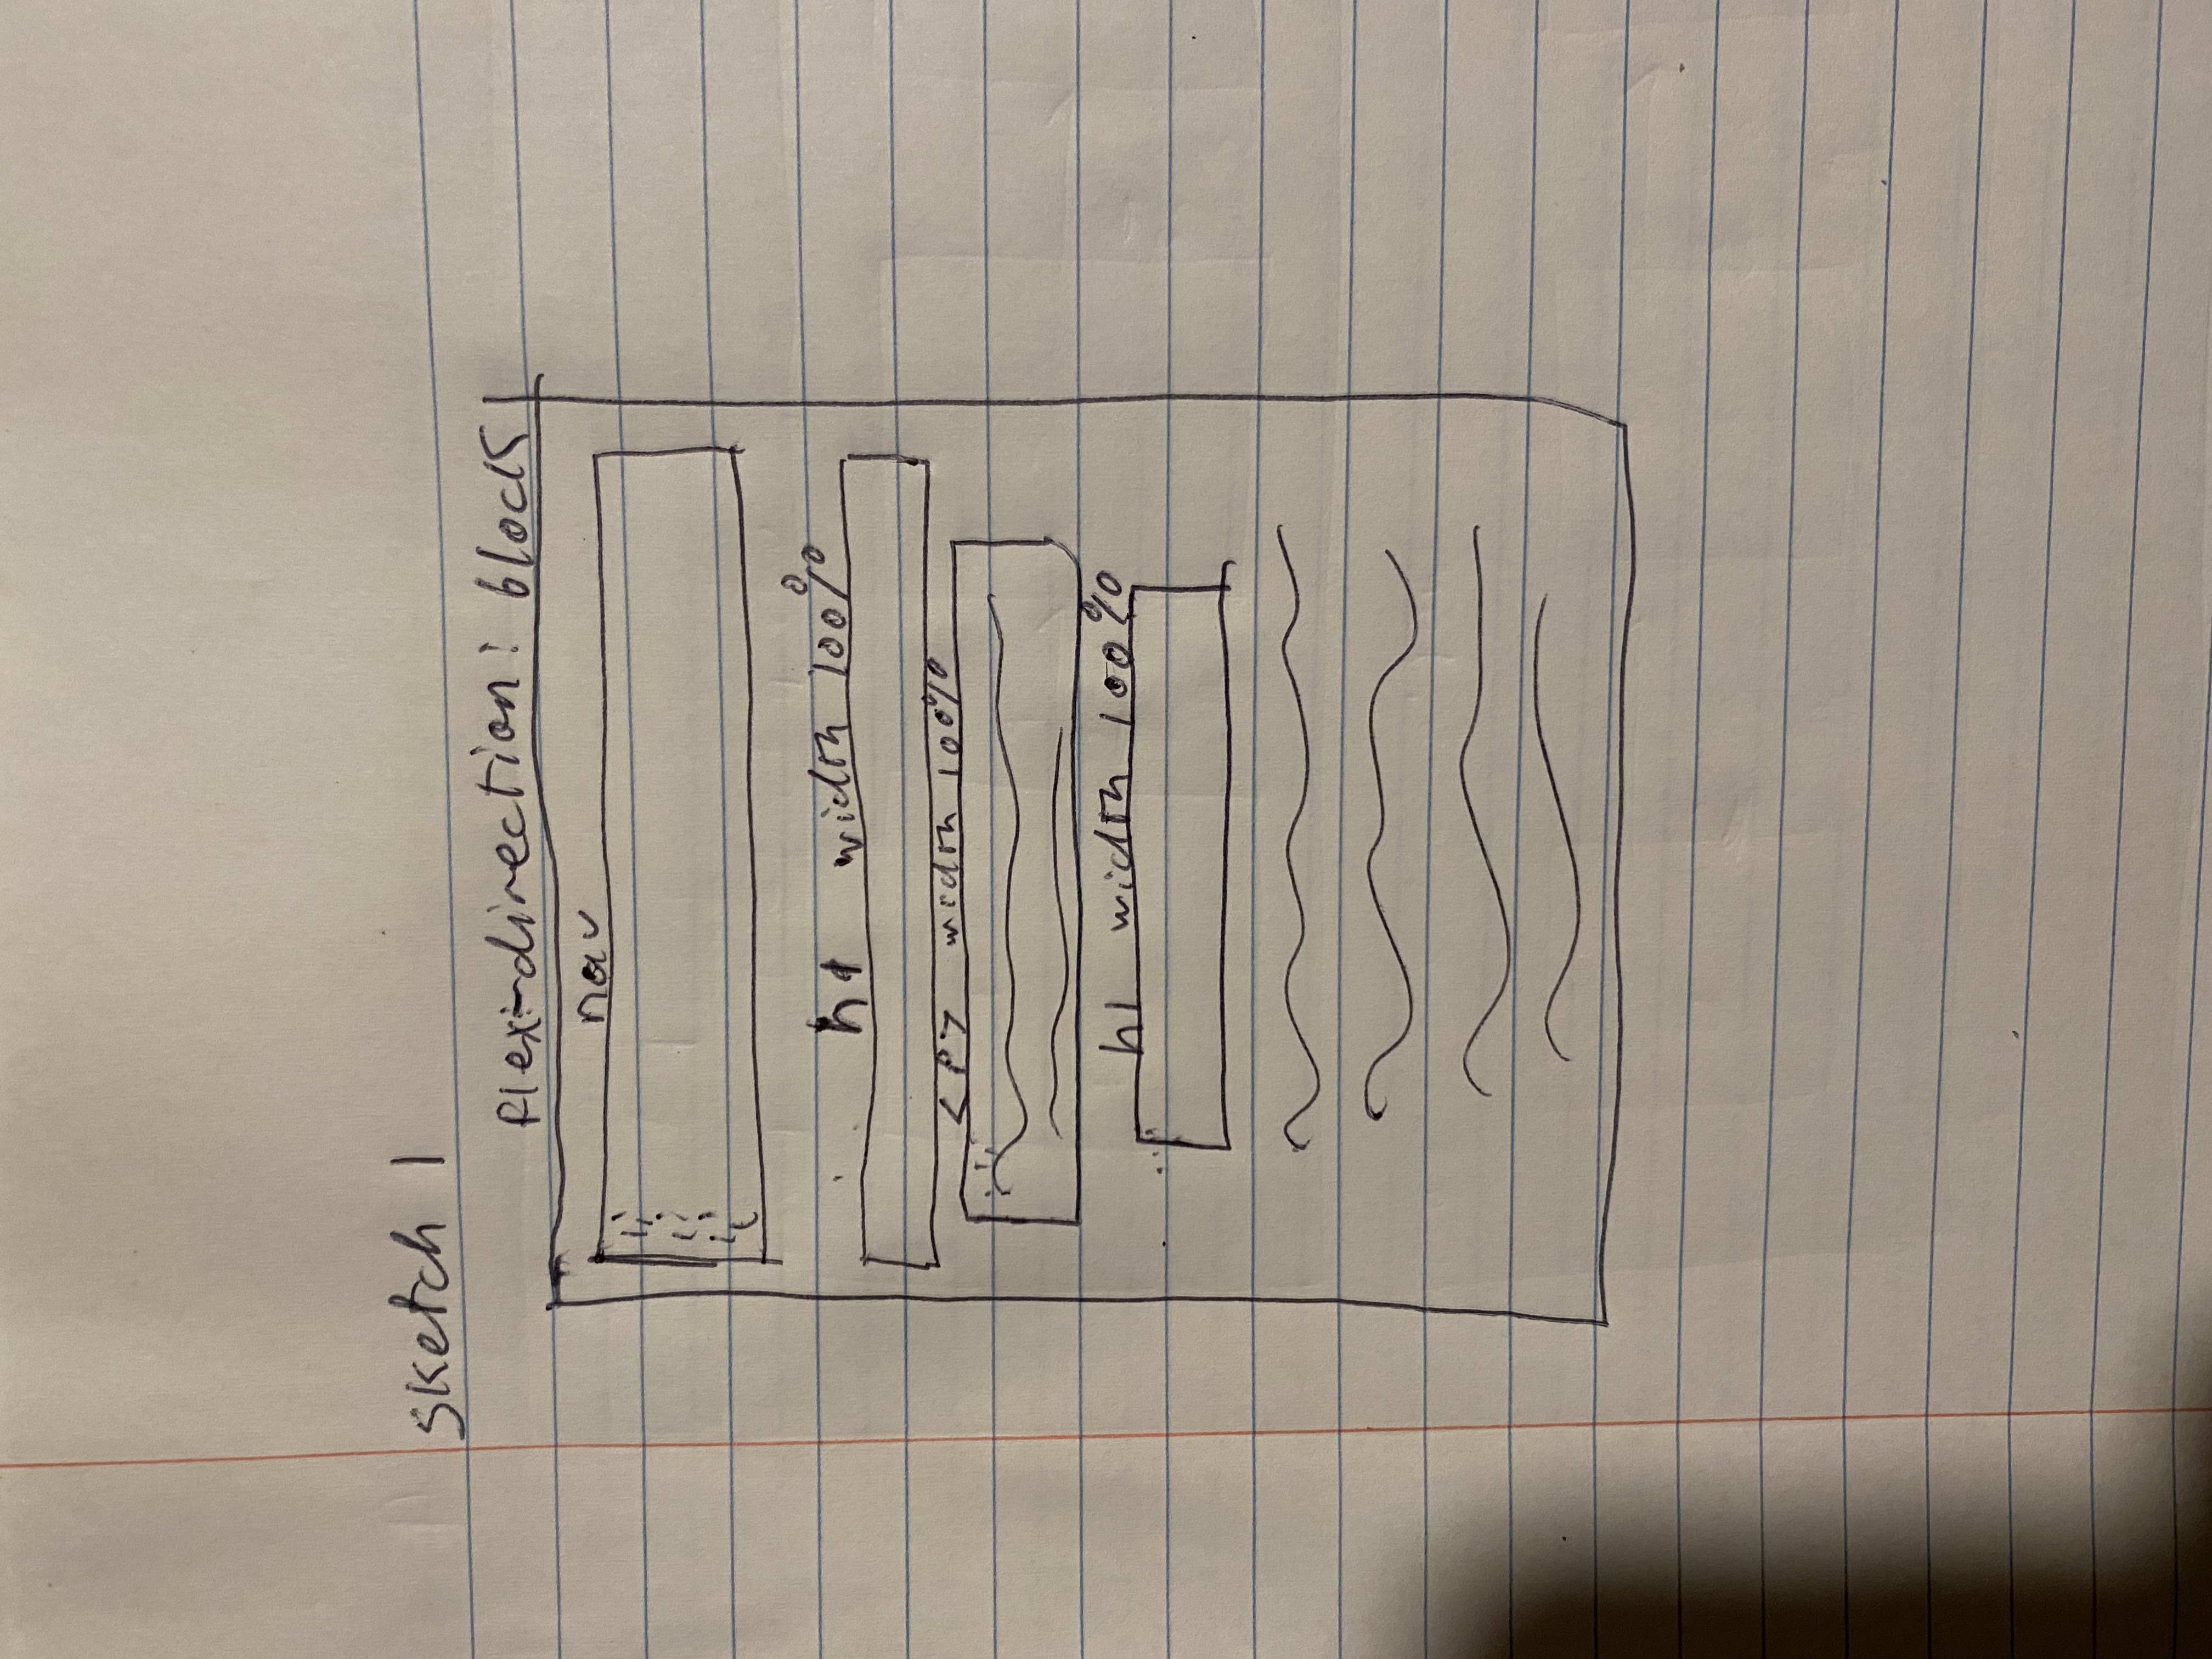 sketch 1
flex-direction: block
nav
li
li
li
h1 width 100%
<p> width 100%
h1 width 100%